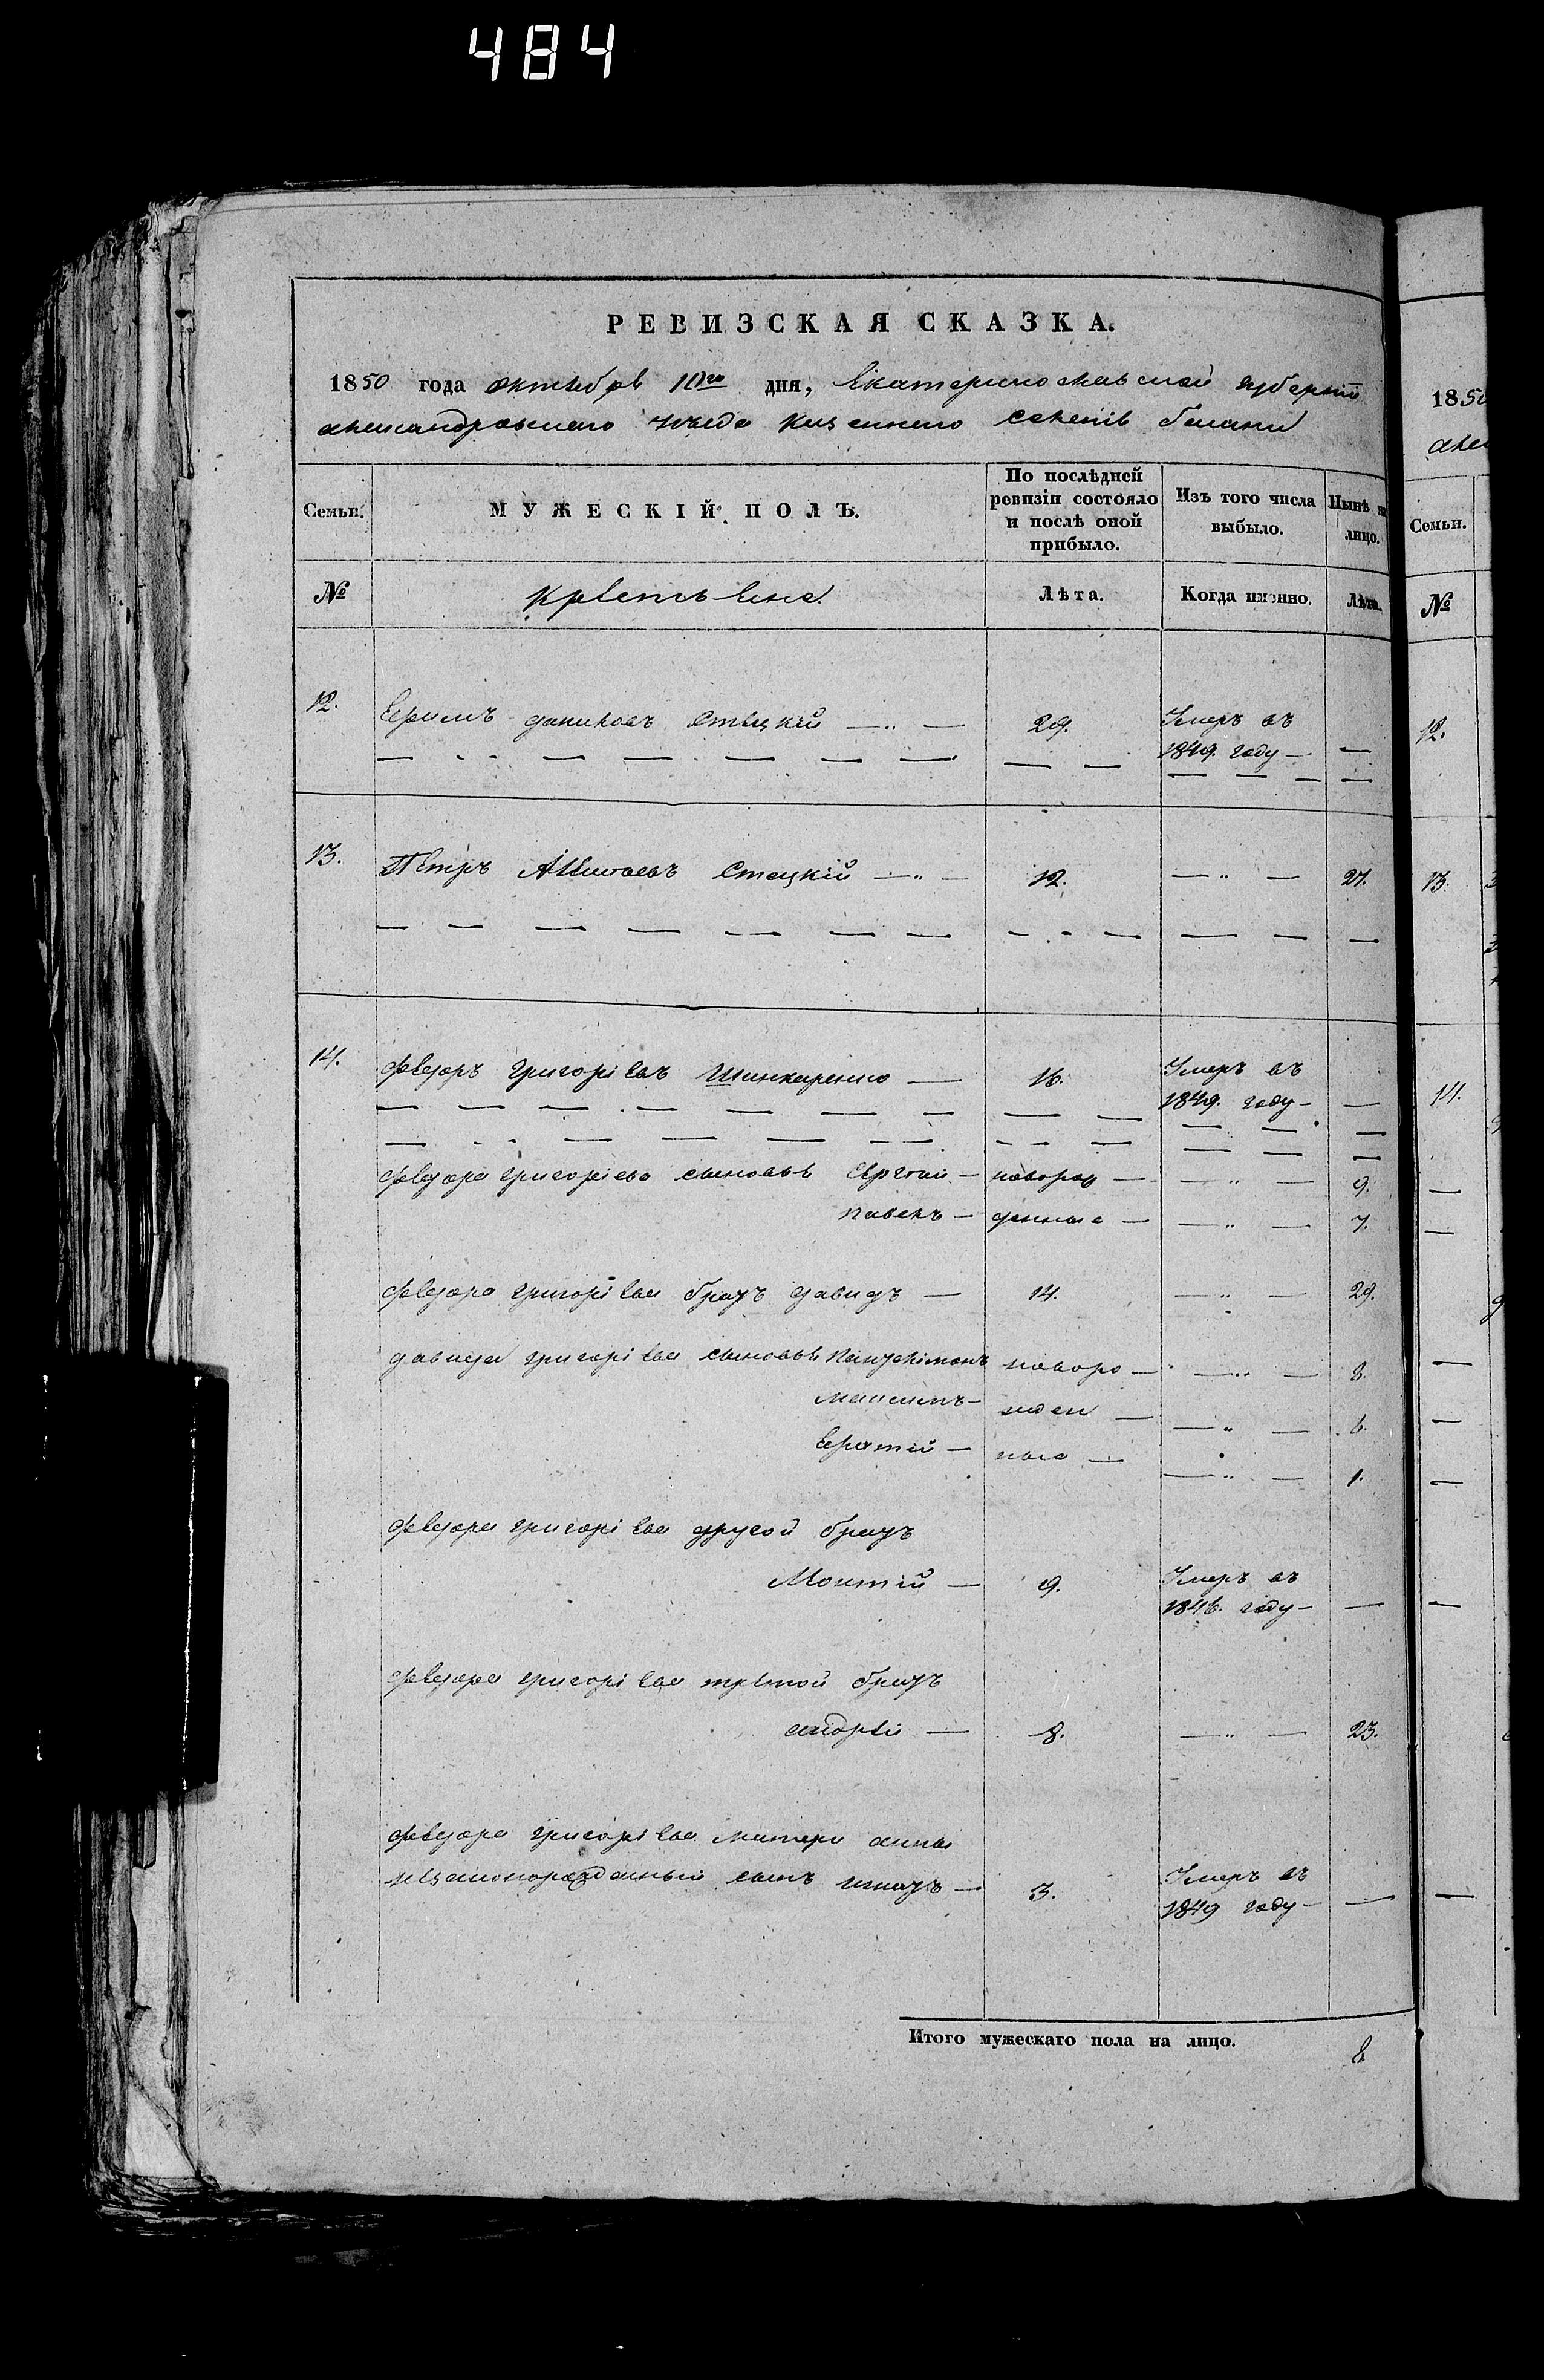 484
РЕВИЗСКАЯ СКАЗКА.
1850 года октября дня, Екатеринославской губерніи
александровскаго уезда казеннаго селенія белики
Семьи. МУЖЕСКІЙ ПОЛЪ. По послѣдней ревизіи состояло и послѣ оной прибыло. Изъ того числа выбыло. Нынѣ на лицо.
№ крестьяне Лѣта. Когда именно. Лѣта.
12. Ефимъ даниловъ Стецкій 29. Умеръ въ
1849. году
13. Петръ Стецкій 12. 27.
14. Федоръ григоріевъ Шинкаренко 16. Умеръ въ
1849. году
федора григоріева сыновья Сергей новорож 9.
павелъ денные 7.
федора григоріева братъ давидъ 14. 29.
давида григоріева сыновья Пантелімонъ новоро 8.
максимъ жден 6.
ные 1.
федора григоріева другой братъ
9. Умеръ въ
1846. году
федора григоріева третой братъ
андрей 8. 23.
федора григоріева матери анны
незаконорожденный сынъ игнатъ 3. Умеръ въ
1849 году
Итого мужескаго пола на лицо. 8
1850
Семьи.
№
12.
13.
14.